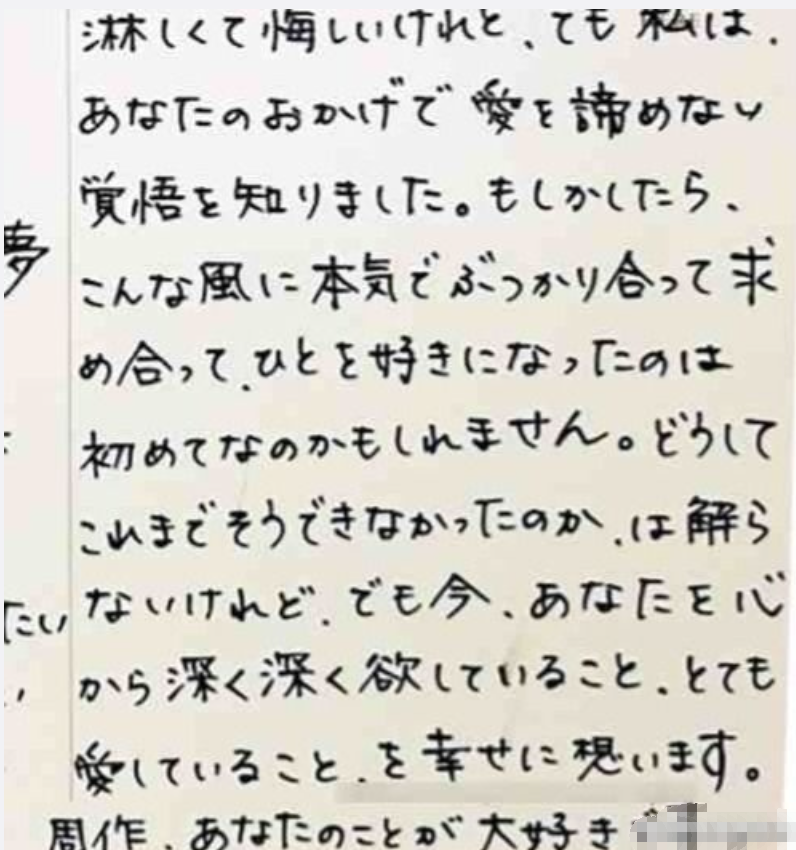 淋しくて悔しいけれど、でも 私は、
あなたのおかげで 愛を諦めない
覚悟を知りました。もしかしたら、
こんな風に本気でぶつかり合って求
め合って、ひとを好きになったのは
初めてなのかもしれません。どうして
これまでそうできなかったのか、は解ら
ないけれど、でも今、あなたを心
から深く深く欲していること、とても
愛していること、を幸せに想います。
周作、あなたのことが大好き
夢
たい